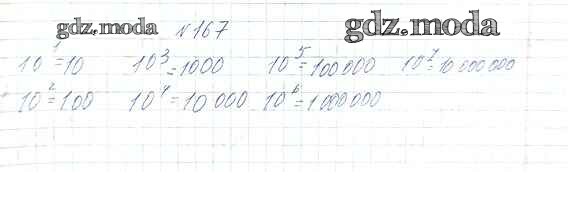 gdz.moda № 167 gdz.moda
10¹=10 10³=1000 10⁵=100 000 10⁷=10 000 000
10²=100 10⁴=10 000 10⁶=1 000 000